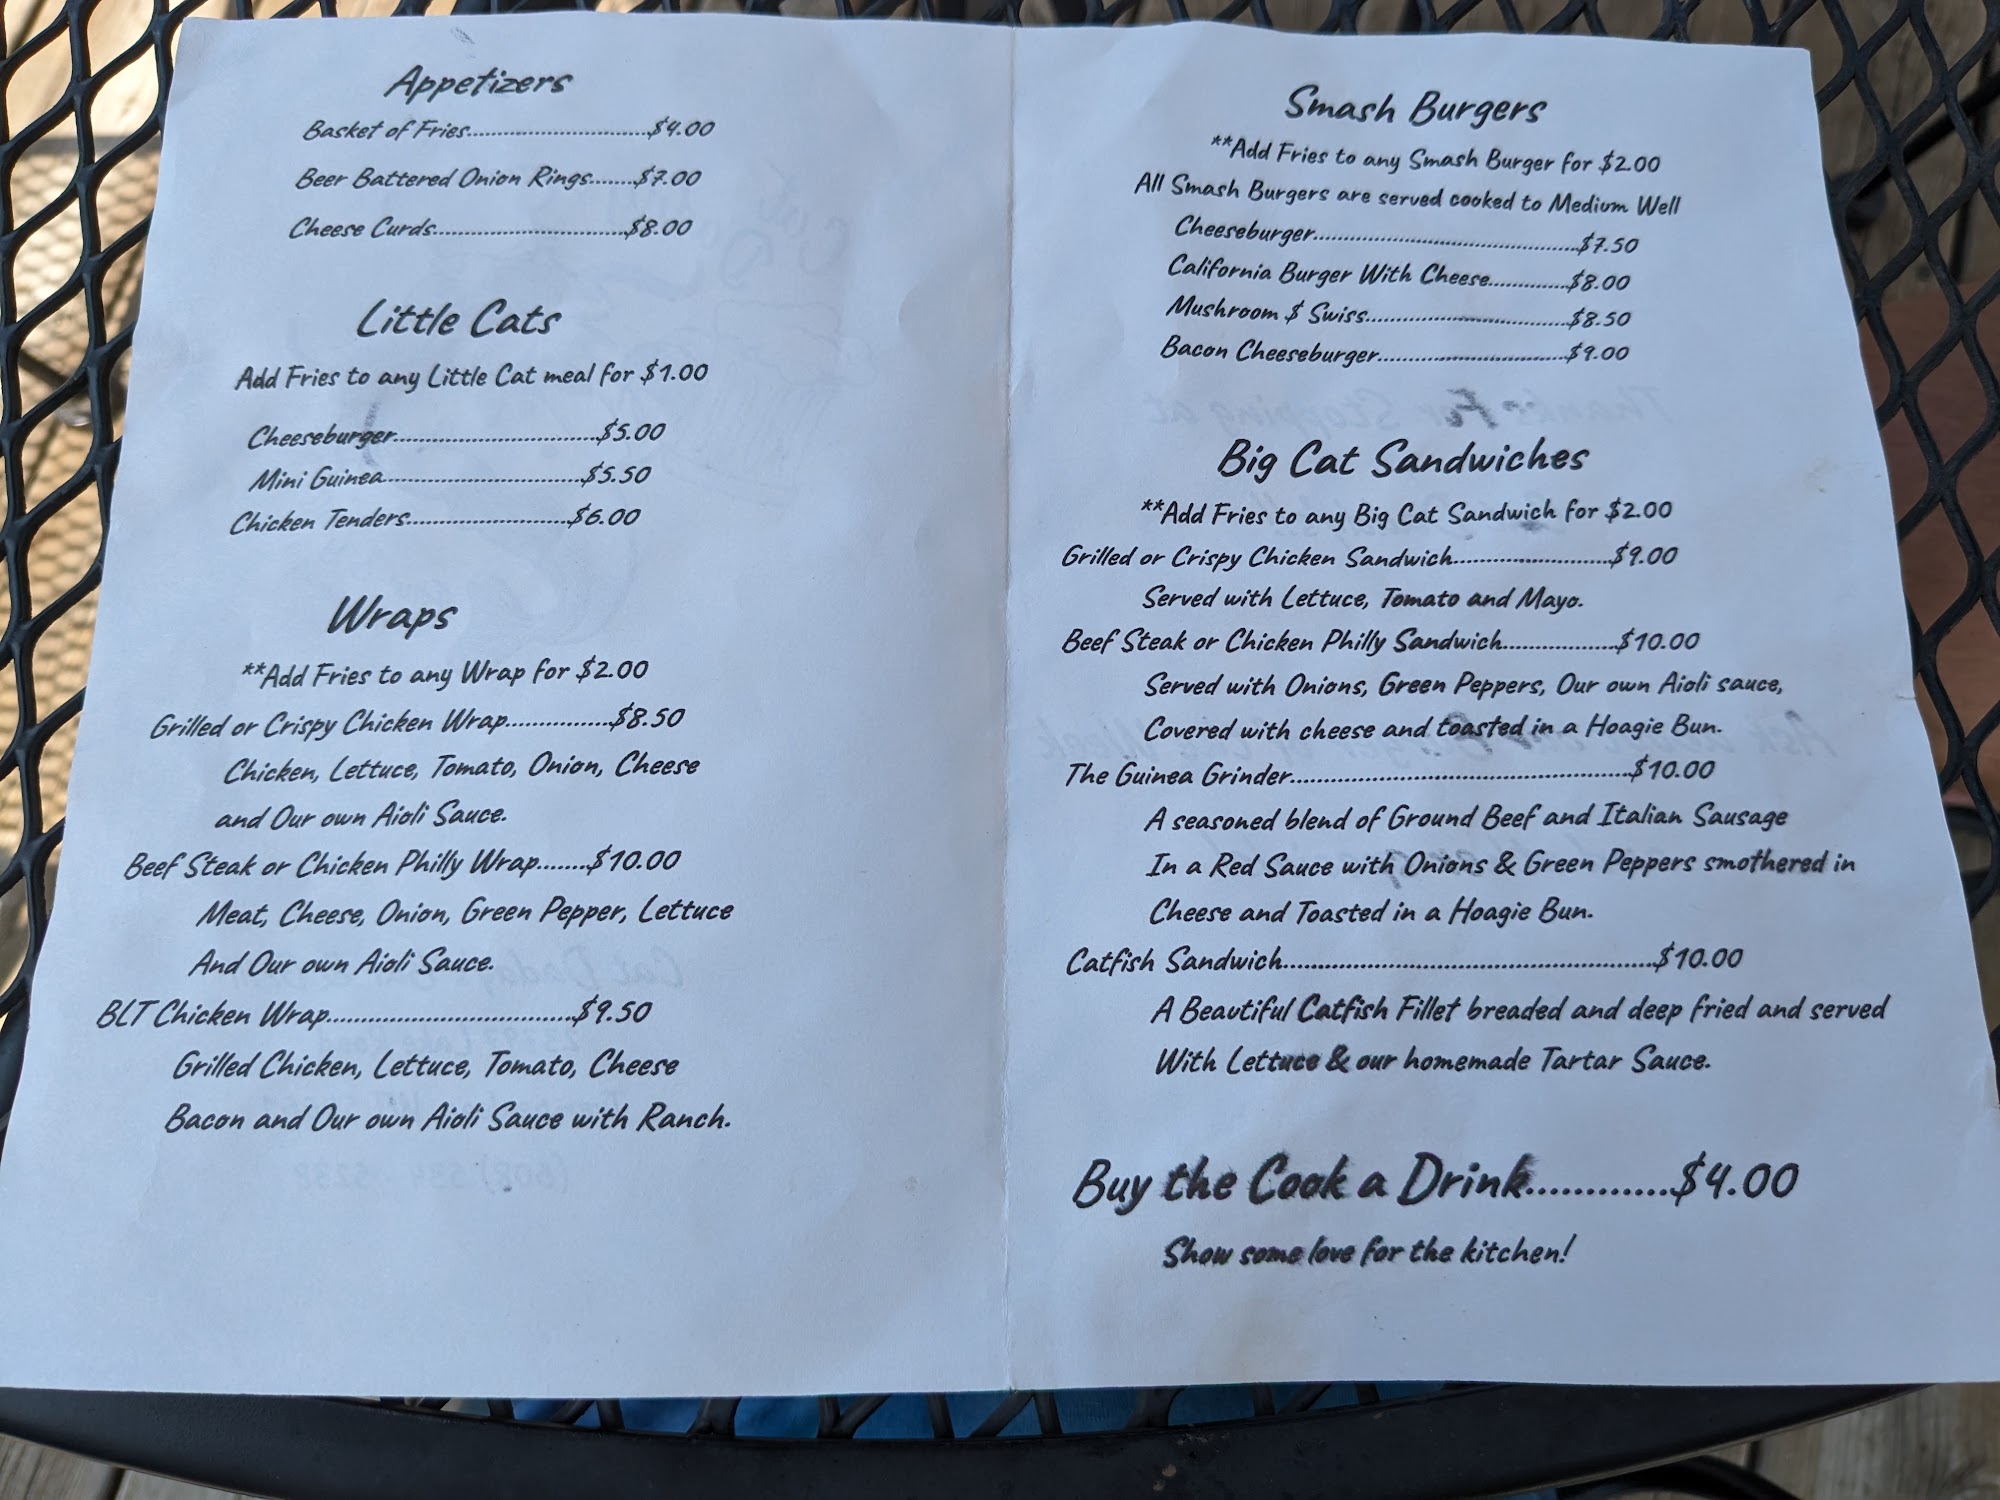 Appetizers
Basket of Fries..............................$4.00
Beer Battered Onion Rings.......$7.00
Cheese Curds...............................$8.00
Little Cats
Add Fries to any Little Cat meal for $1.00
Cheeseburger.................................$5.00
Mini Guinea................................$5.50
Chicken Tenders..........................$6.00
Wraps
**Add Fries to any Wrap for $2.00
Grilled or Crispy Chicken Wrap................$8.50
Chicken, Lettuce, Tomato, Onion, Cheese
and Our own Aioli Sauce.
Beef Steak or Chicken Philly Wrap.......$10.00
Meat, Cheese, Onion, Green Pepper, Lettuce
And Our own Aioli Sauce.
BLT Chicken Wrap....................................$9.50
Grilled Chicken, Lettuce, Tomato, Cheese
Bacon and Our own Aioli Sauce with Ranch.
Smash Burgers
**Add Fries to any Smash Burger for $2.00
All Smash Burgers are served cooked to Medium Well
Cheeseburger.........................................$7.50
California Burger With Cheese.............$8.00
Mushroom $ Swiss................................$8.50
Bacon Cheeseburger..............................$9.00
Big Cat Sandwiches
**Add Fries to any Big Cat Sandwich for $2.00
Grilled or Crispy Chicken Sandwich........................$9.00
Served with Lettuce, Tomato and Mayo.
Beef Steak or Chicken Philly Sandwich.................$10.00
Served with Onions, Green Peppers, Our own Aioli sauce,
Covered with cheese and toasted in a Hoagie Bun.
The Guinea Grinder..................................................$10.00
A seasoned blend of Ground Beef and Italian Sausage
In a Red Sauce with Onions & Green Peppers smothered in
Cheese and Toasted in a Hoagie Bun.
Catfish Sandwich.......................................................$10.00
A Beautiful Catfish Fillet breaded and deep fried and served
With Lettuce & our homemade Tartar Sauce.
Buy the Cook a Drink.............$4.00
Show some love for the kitchen!